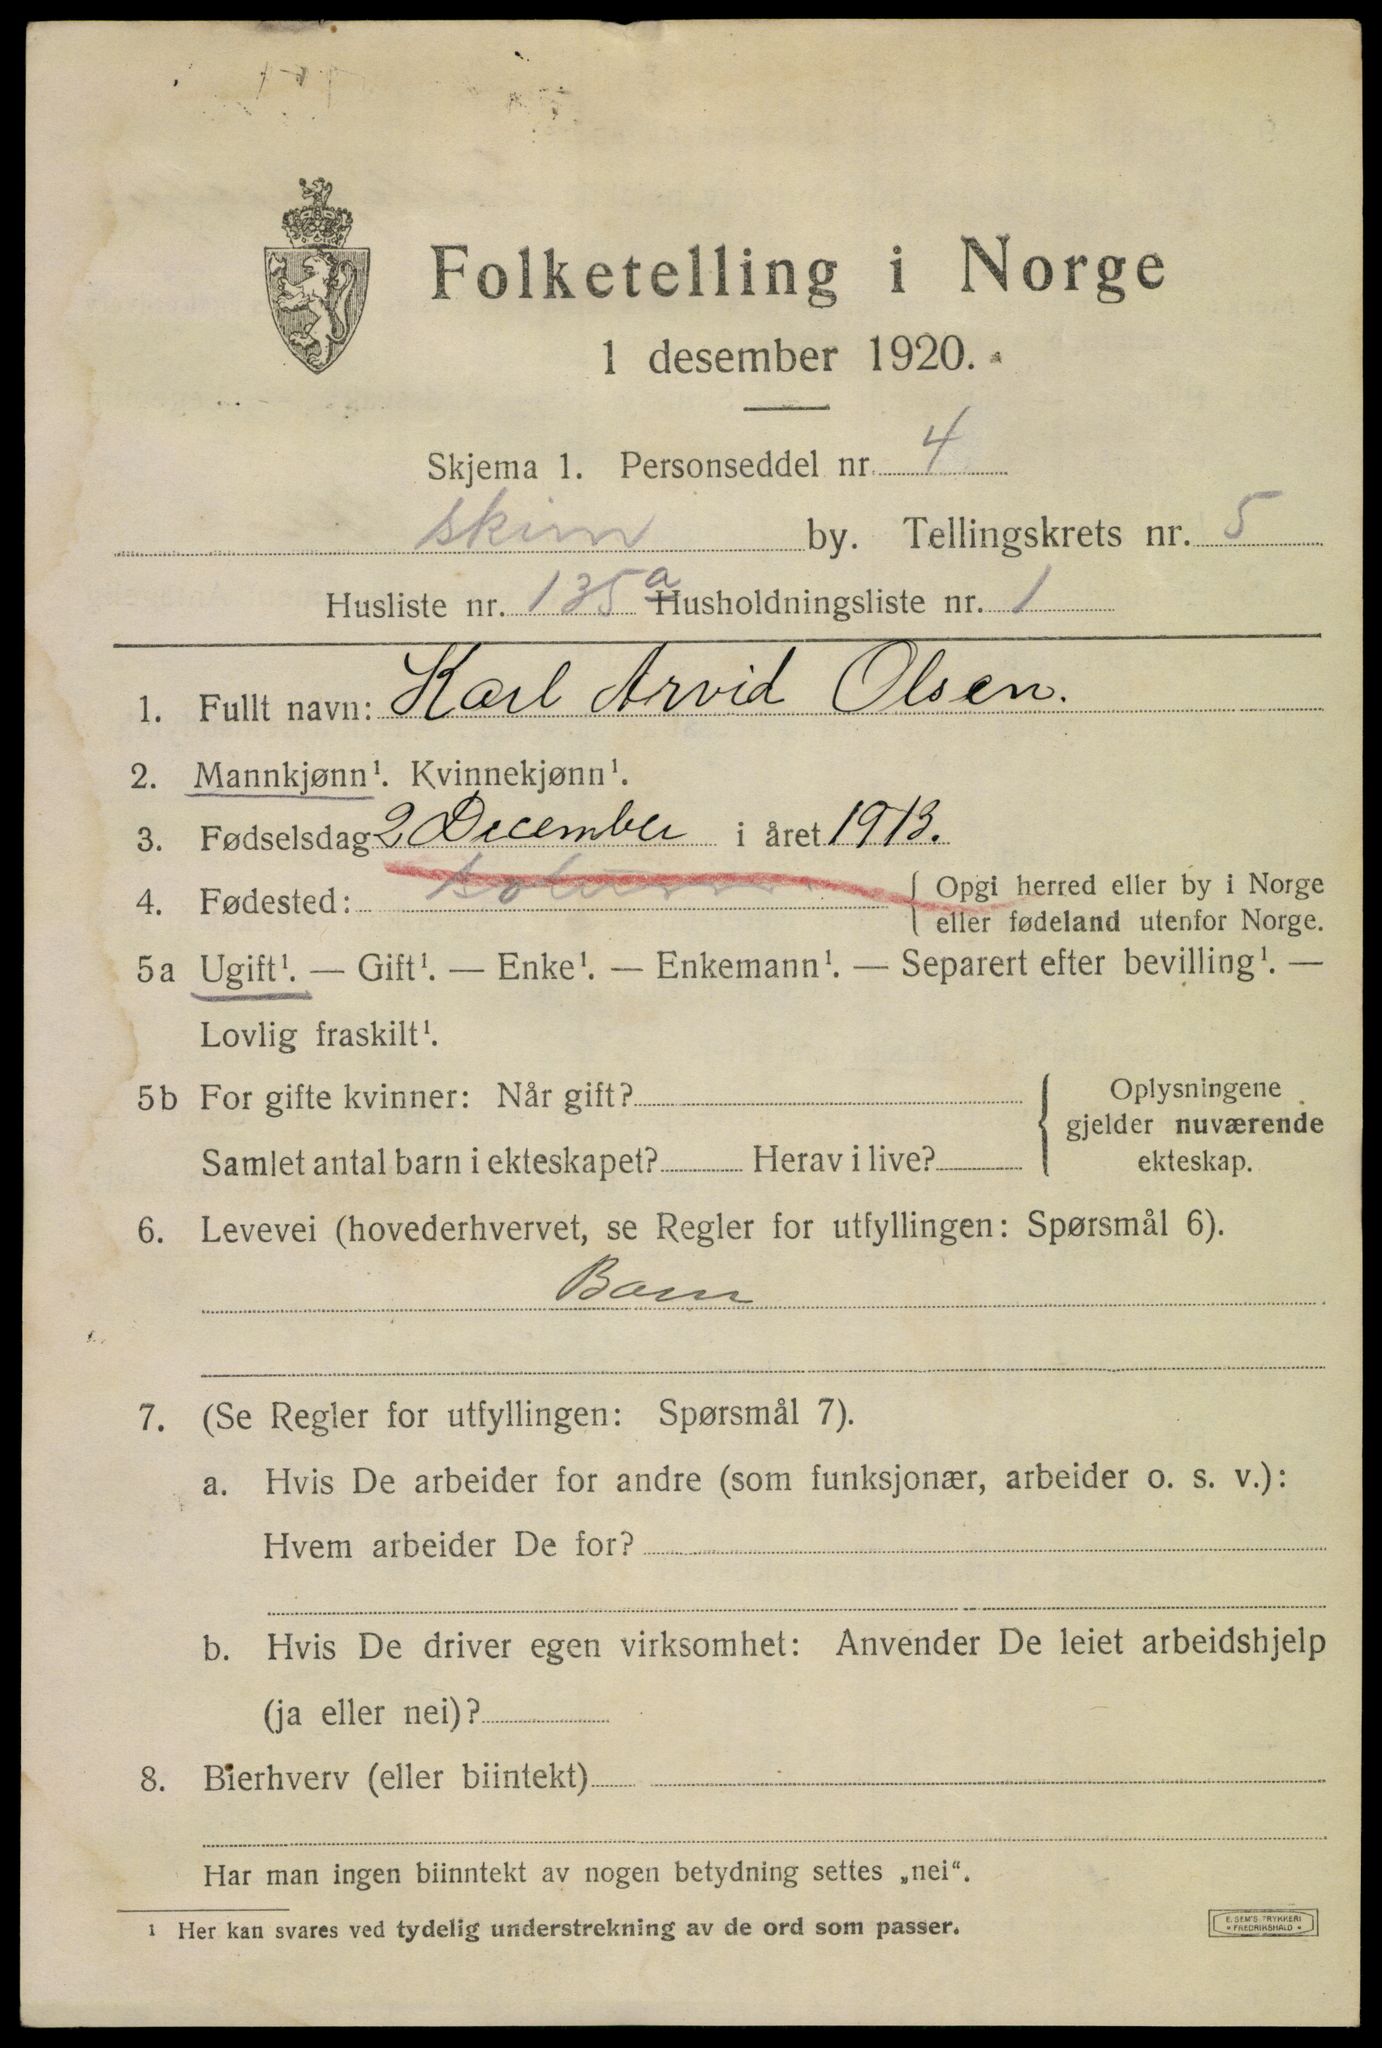 Folketelling i Norge
1 desember 1920.
Skjema 1. Personseddel nr. 4
Skien by. Tellingskrets nr. 5
Husliste nr. 135 a Husholdningsliste nr. 1
1. Fullt navn: Karl Arvid Olsen.
2. Mannkjønn¹. Kvinnekjønn¹.
3. Fødselsdag 2 December i året 1913.
4. Fødested: Solum
Opgi herred eller by i Norge
eller fødeland utenfor Norge.
5a Ugift¹. — Gift¹. — Enke¹. — Enkemann¹. — Separert efter bevilling¹. —
Lovlig fraskilt¹.
5b For gifte kvinner: Når gift?
Samlet antal barn i ekteskapet? Herav i live?
Oplysningene
gjelder nuværende
ekteskap.
6. Levevei (hovederhvervet, se Regler for utfyllingen: Spørsmål 6).
Barn
7. (Se Regler for utfyllingen: Spørsmål 7).
a. Hvis De arbeider for andre (som funksjonær, arbeider o. s. v.):
Hvem arbeider De for?
b. Hvis De driver egen virksomhet: Anvender De leiet arbeidshjelp
(ja eller nei)?
8. Bierhverv (eller biintekt)
Har man ingen biinntekt av nogen betydning settes „nei“.
¹ Her kan svares ved tydelig understrekning av de ord som passer.
E. SEM'S TRYKKERI
FREDRIKSHALD